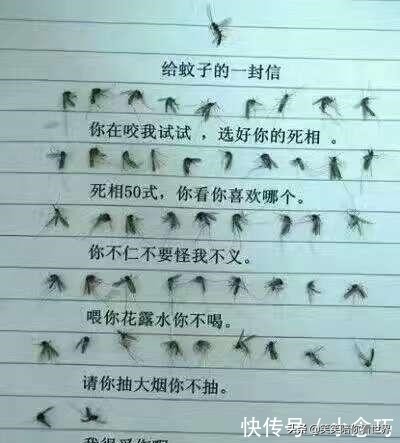 给蚊子的一封信
你在咬我试试，选好你的死相。
死相50式，你看你喜欢哪个。
你不仁不要怪我不义。
喂你花露水你不喝。
请你抽大烟你不抽。
快传号/